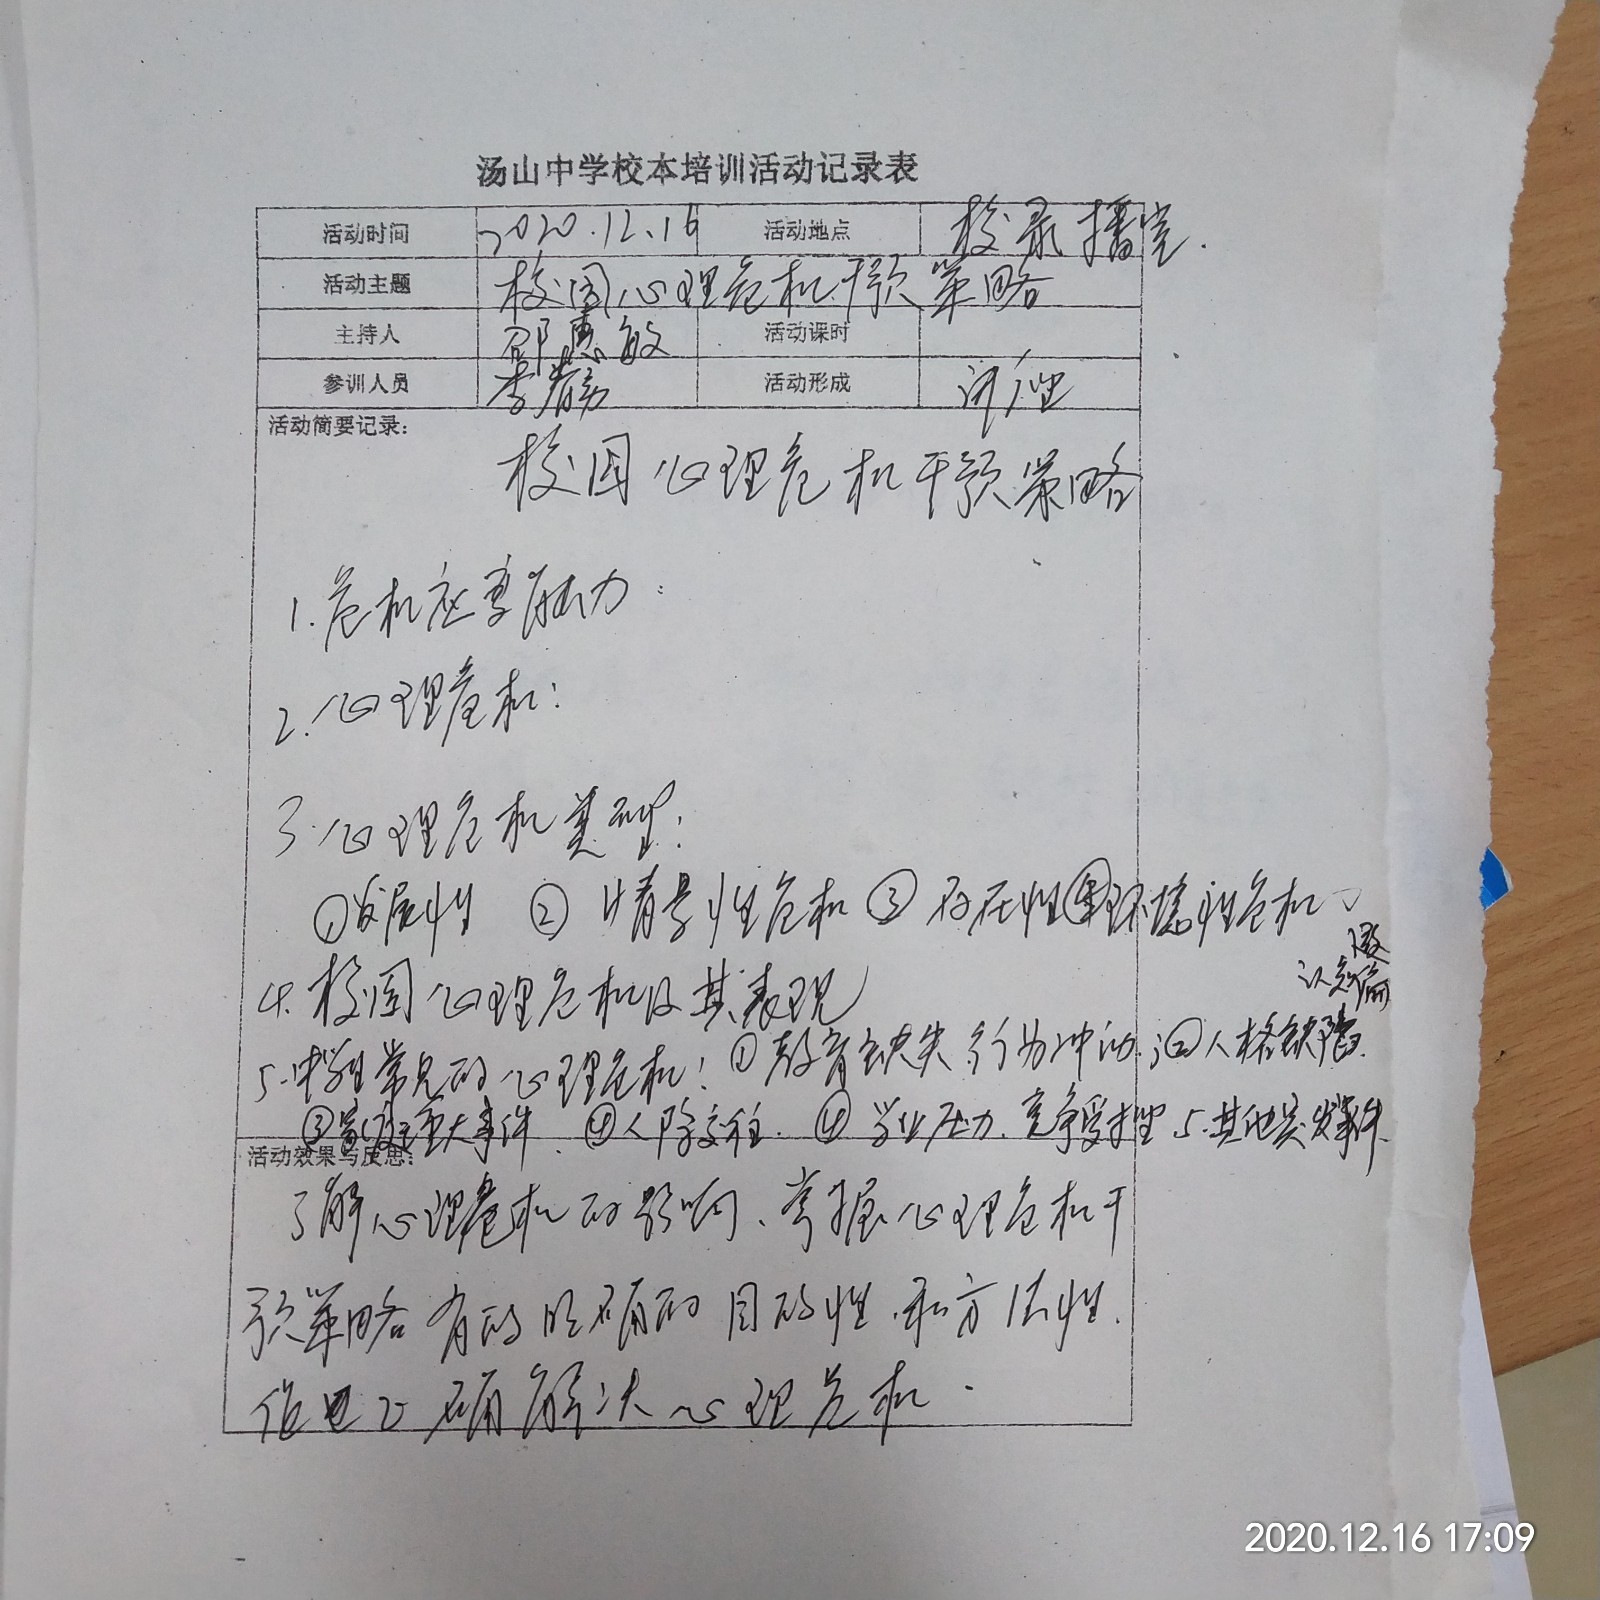 汤山中学校本培训活动记录表
活动时间 2020.12.16 活动地点 校录播室.
活动主题 校园心理危机干预策略
主持人 邵惠敏 活动课时
参训人员 李 活动形成 讲座
活动简要记录:
校园心理危机干预策略
1.危机应变能力:
2.心理危机:
3.心理危机类型:
①发展性 ②情景性危机 ③存在性 ④环境性危机
4.校园心理危机及其表现
认知偏
5.中学生常见的心理危机:①教育缺失 行为冲动;②人格缺陷.
③家庭重大事件. ④人际交往. ④学业压力.竞争受挫 5.其他突发事件.
活动效果与反思:
了解心理危机的影响、掌握心理危机干
预策略有的明确的目的性.和方法性.
作 正确解决心理危机.
2020.12.16 17:09